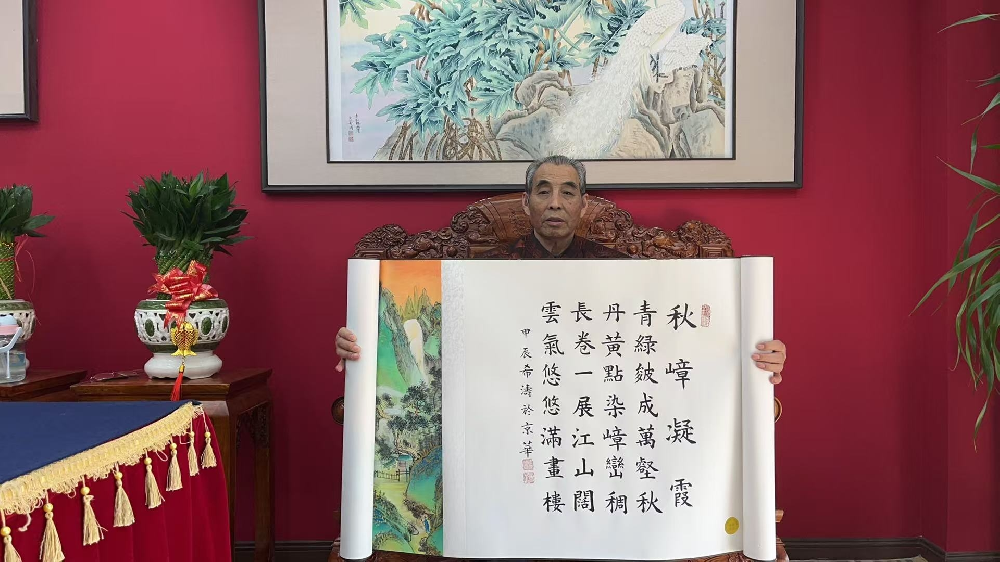 秋嶂凝霞
青綠皴成萬壑秋
丹黃點染嶂巒稠
長卷一展江山闊
雲氣悠悠滿畫樓
甲辰希濤於京華